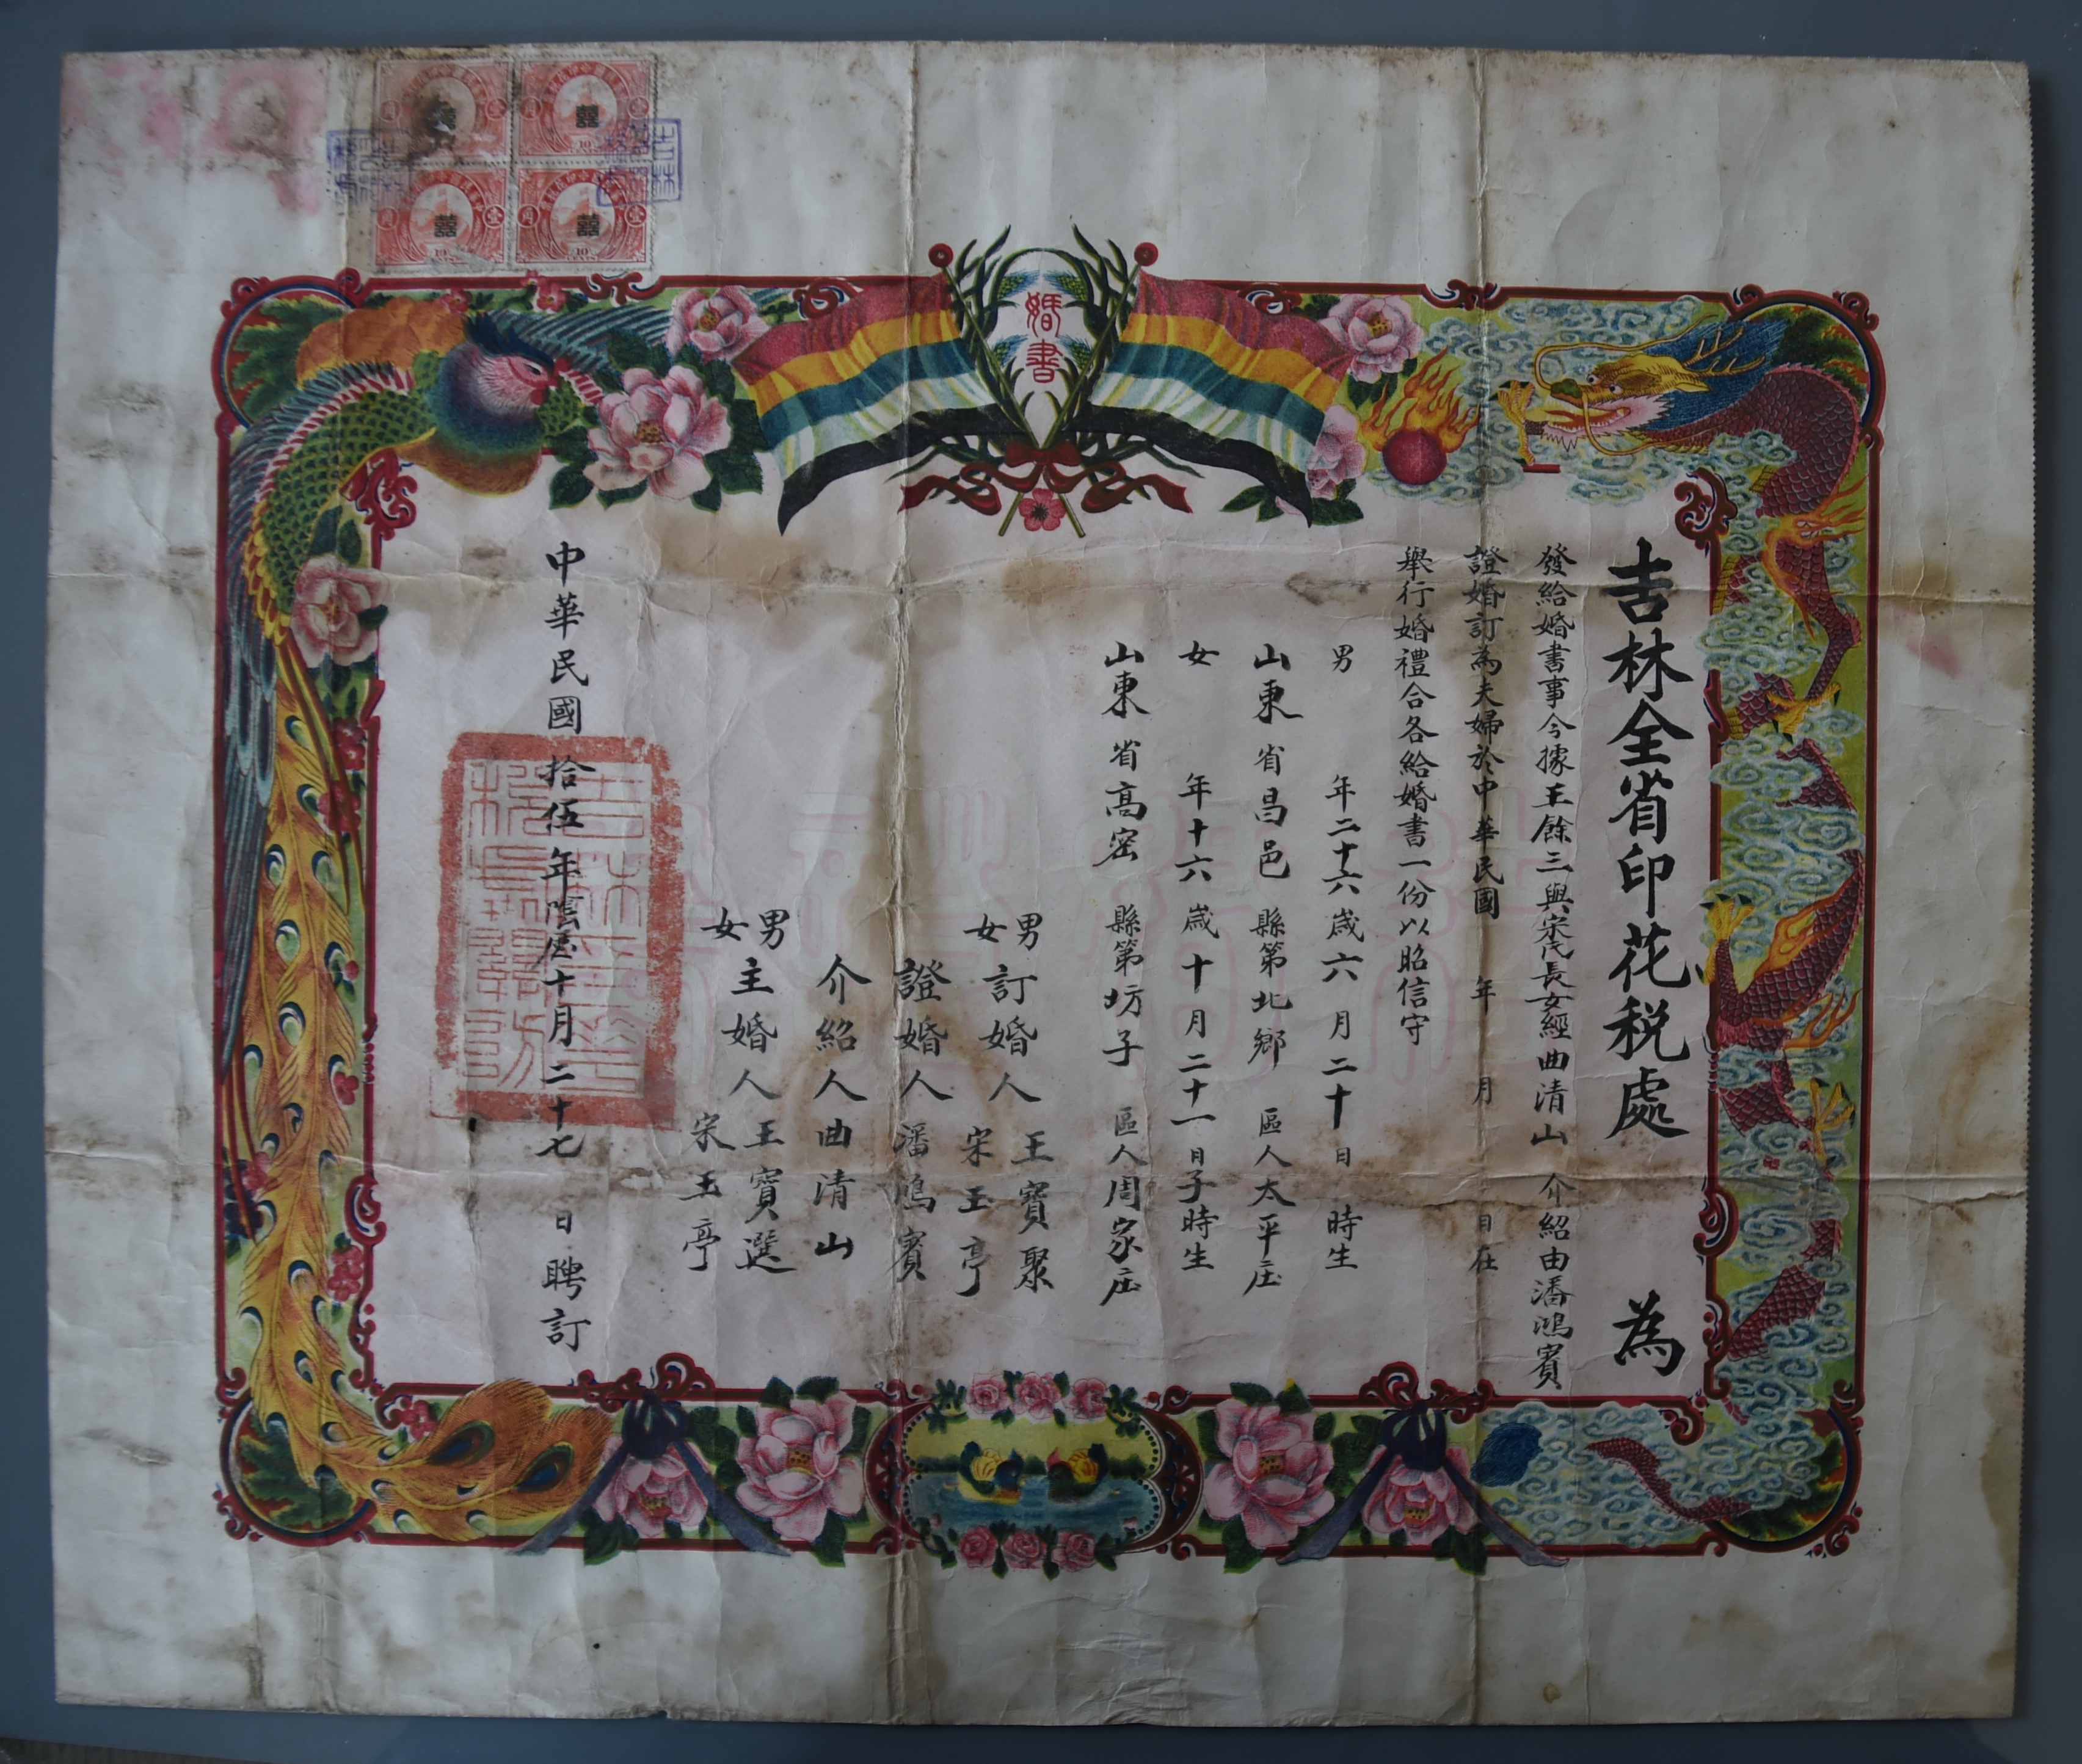 婚書
吉林全省印花税處 為
發給婚書事今據王餘三與宋氏長女經曲清山 介紹由潘鴻賓
證婚訂為夫婦於中華民國 年 月 日在
舉行婚禮合各給婚書一份以昭信守
男 年二十六歲六月二十日 時生
山東省昌邑縣第北鄉 區人太平庄
女 年十六歲十月二十一日子時生
山東省高密縣第坊子 區人周家庄
男 女 訂婚人 王寶聚 宋玉亭
證婚人潘鴻賓
介紹人曲清山
男 女 主婚人 王寶選 宋玉亭
中華民國拾伍年陰歷十月二十七日聘訂
囍
囍
囍
囍
壹
角
10
10
10
10
吉林